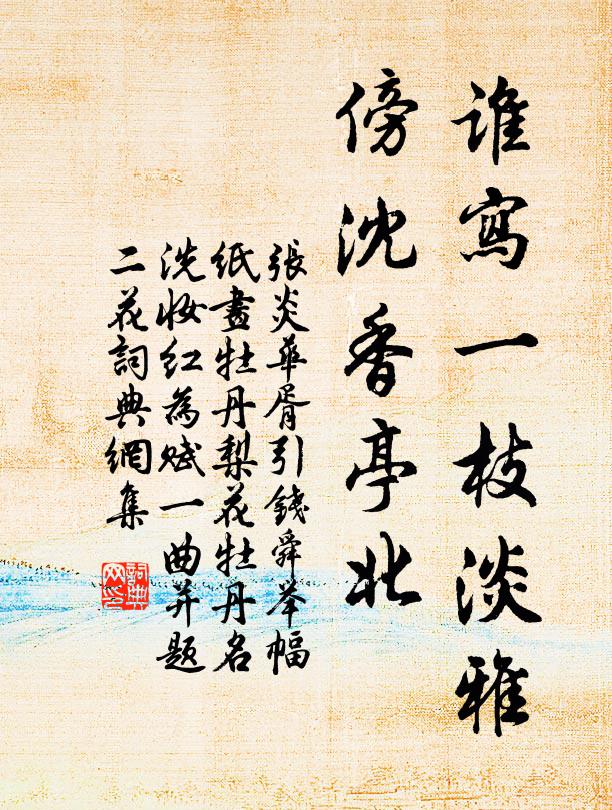 谁寫一枝淡雅
傍沈香亭北
張炎華胥引錢舜举幅
纸畫牡丹梨花牡丹名
洗妆红為赋一曲并题
二花詞典網集
詞典网